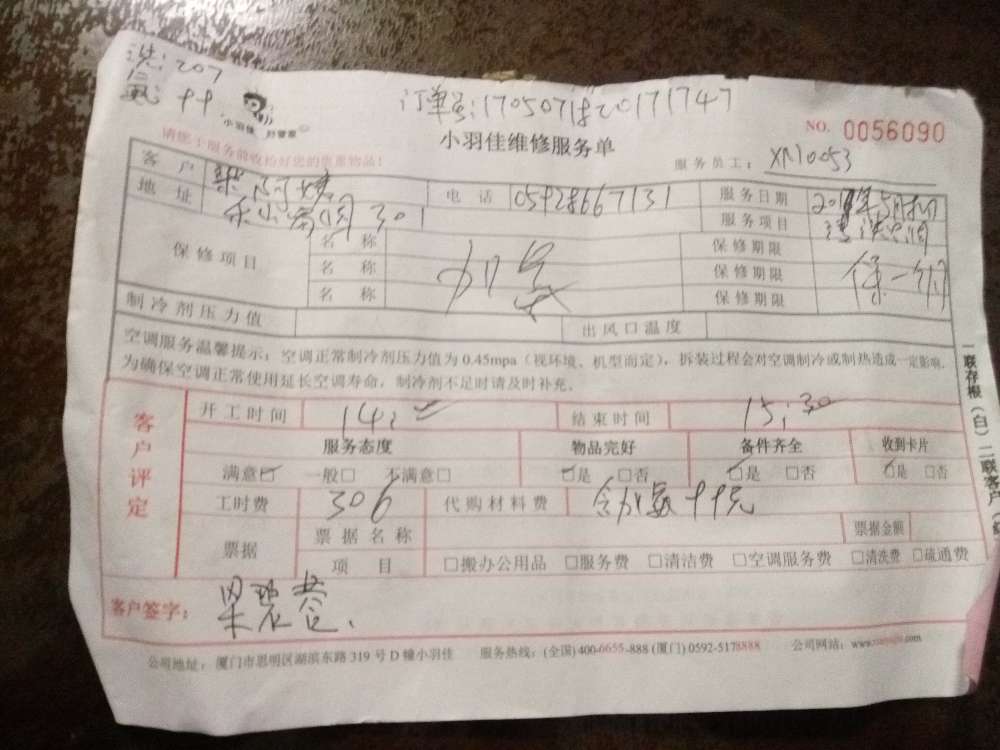 洗:207
氟:99
订单号:170507182017174 7
小羽佳 好管家
NO. 0056090
小羽佳维修服务单
请您于服务前收拾好您的贵重物品!
服务员工: XM0053
客 户
电 话 05928667131 服务日期
地 址 301 服务项目 清洗空调
保修项目 名 称 加氟 保修期限
名 称 保修期限 保一个月
名 称 保修期限
制冷剂压力值 出风口温度
空调服务温馨提示:空调正常制冷剂压力值为 0.45mpa(视环境、机型而定),拆装过程会对空调制冷或制热造成一定影响,
为确保空调正常使用延长空调寿命,制冷剂不足时请及时补充.
客户评定
开工时间 14: 结束时间 15:30
服务态度 物品完好 备件齐全 收到卡片
满意☑ 一般□ 不满意□ ☑是 □否 ☑是 □否 ☑是 □否
工时费 306 代购材料费 含加氟99元
票据 票据名称 票据金额
项 目 □搬办公用品 □服务费 □清洁费 □空调服务费 □清洗费 □疏通费
客户签字:
公司地址: 厦门市思明区湖滨东路 319 号 D 幢小羽佳 服务热线:(全国)400-6655-888 (厦门) 0592-5178888 公司网站:
一联存根(白)二联客户